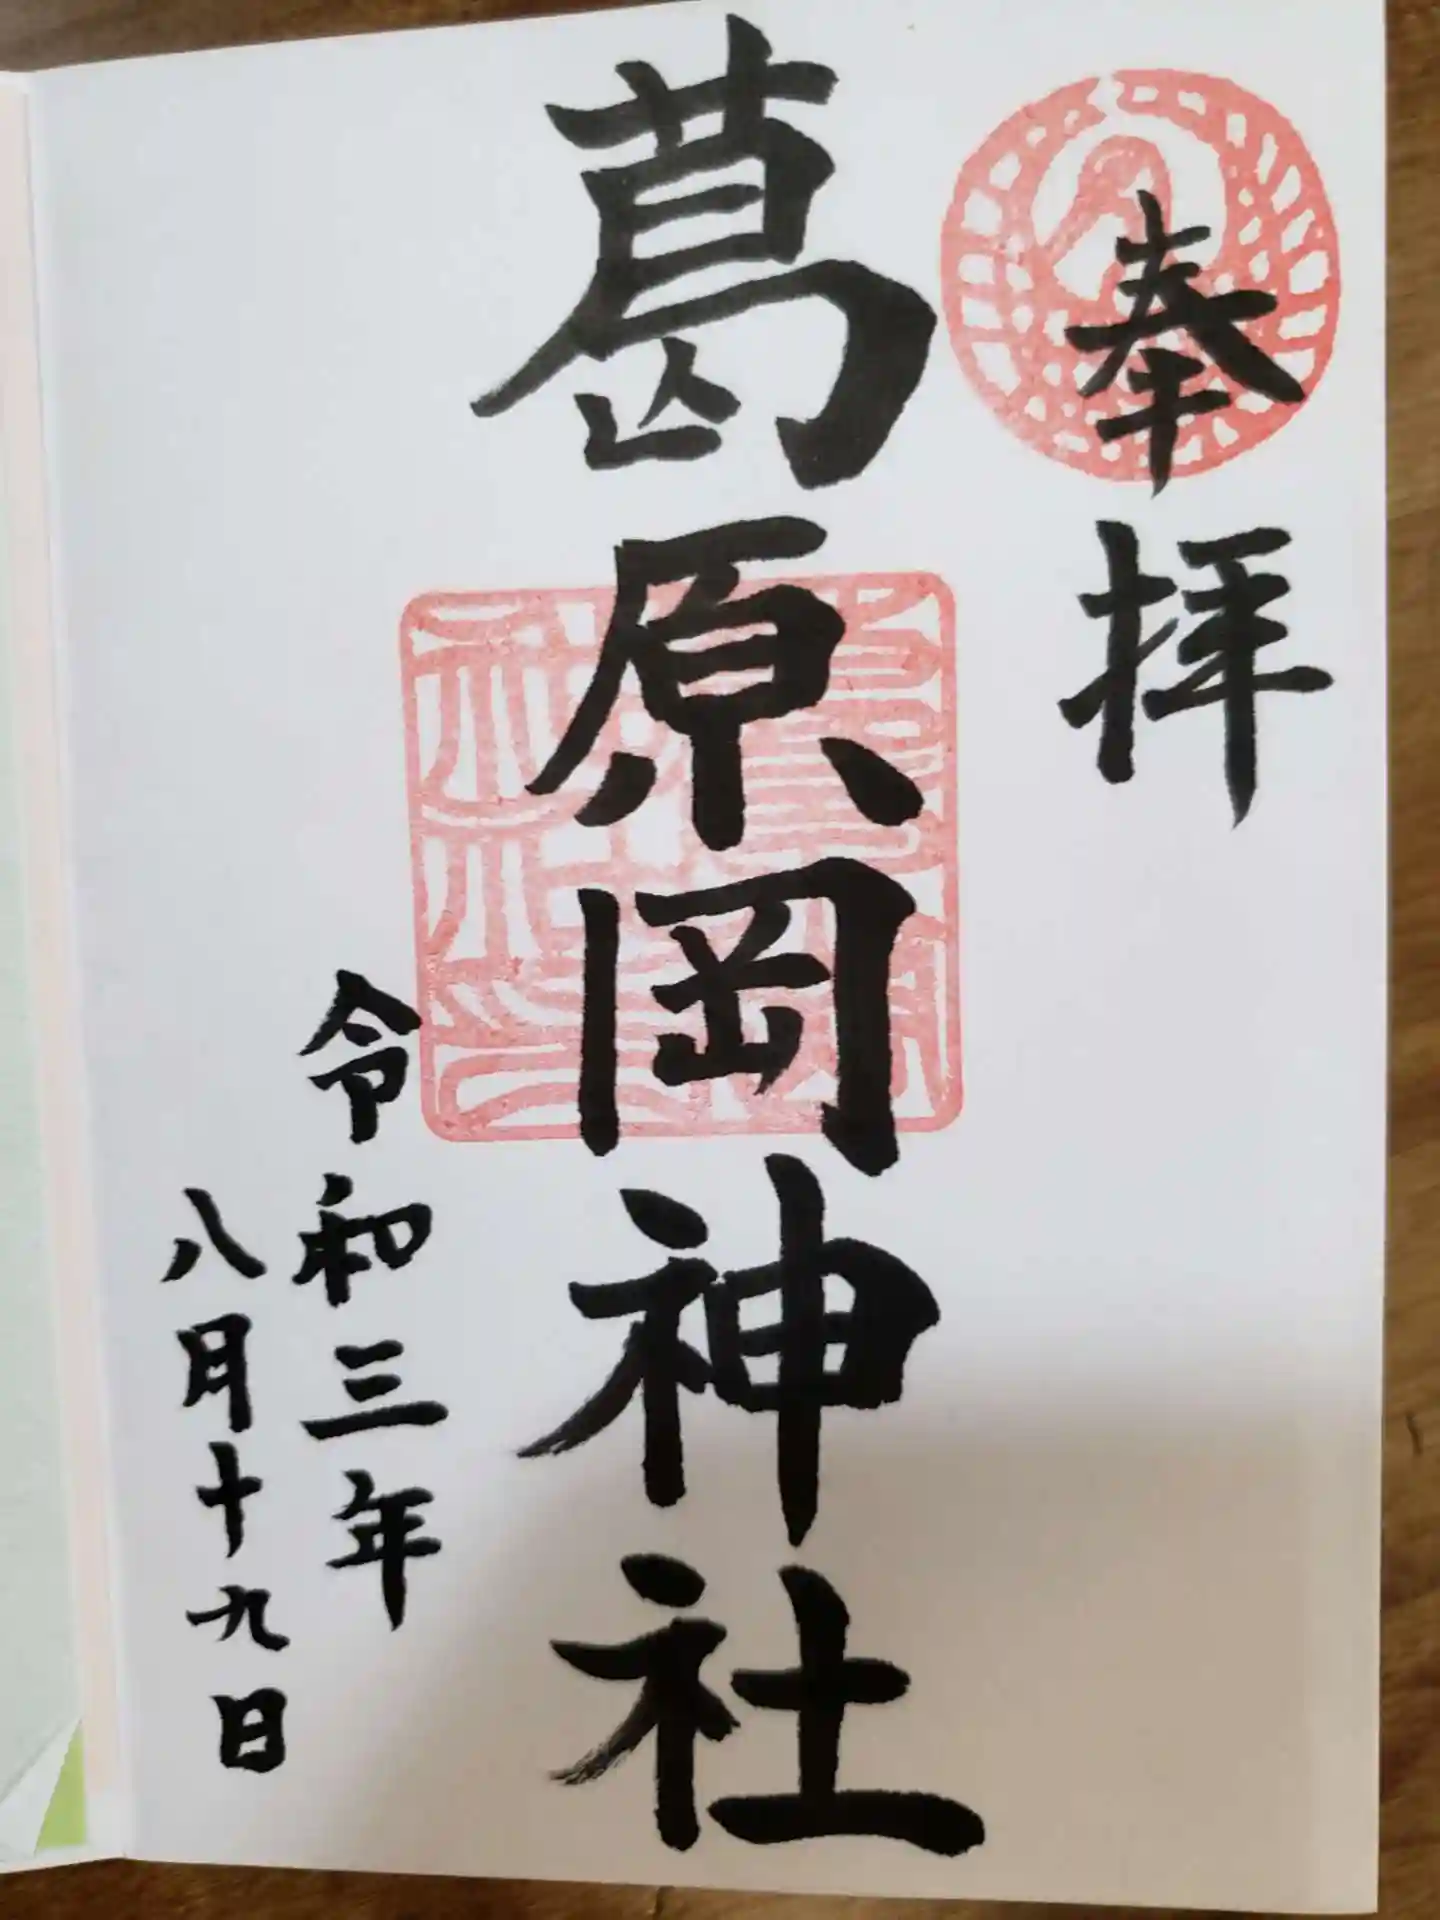 奉拝
葛原岡神社
令和三年
八月十九日